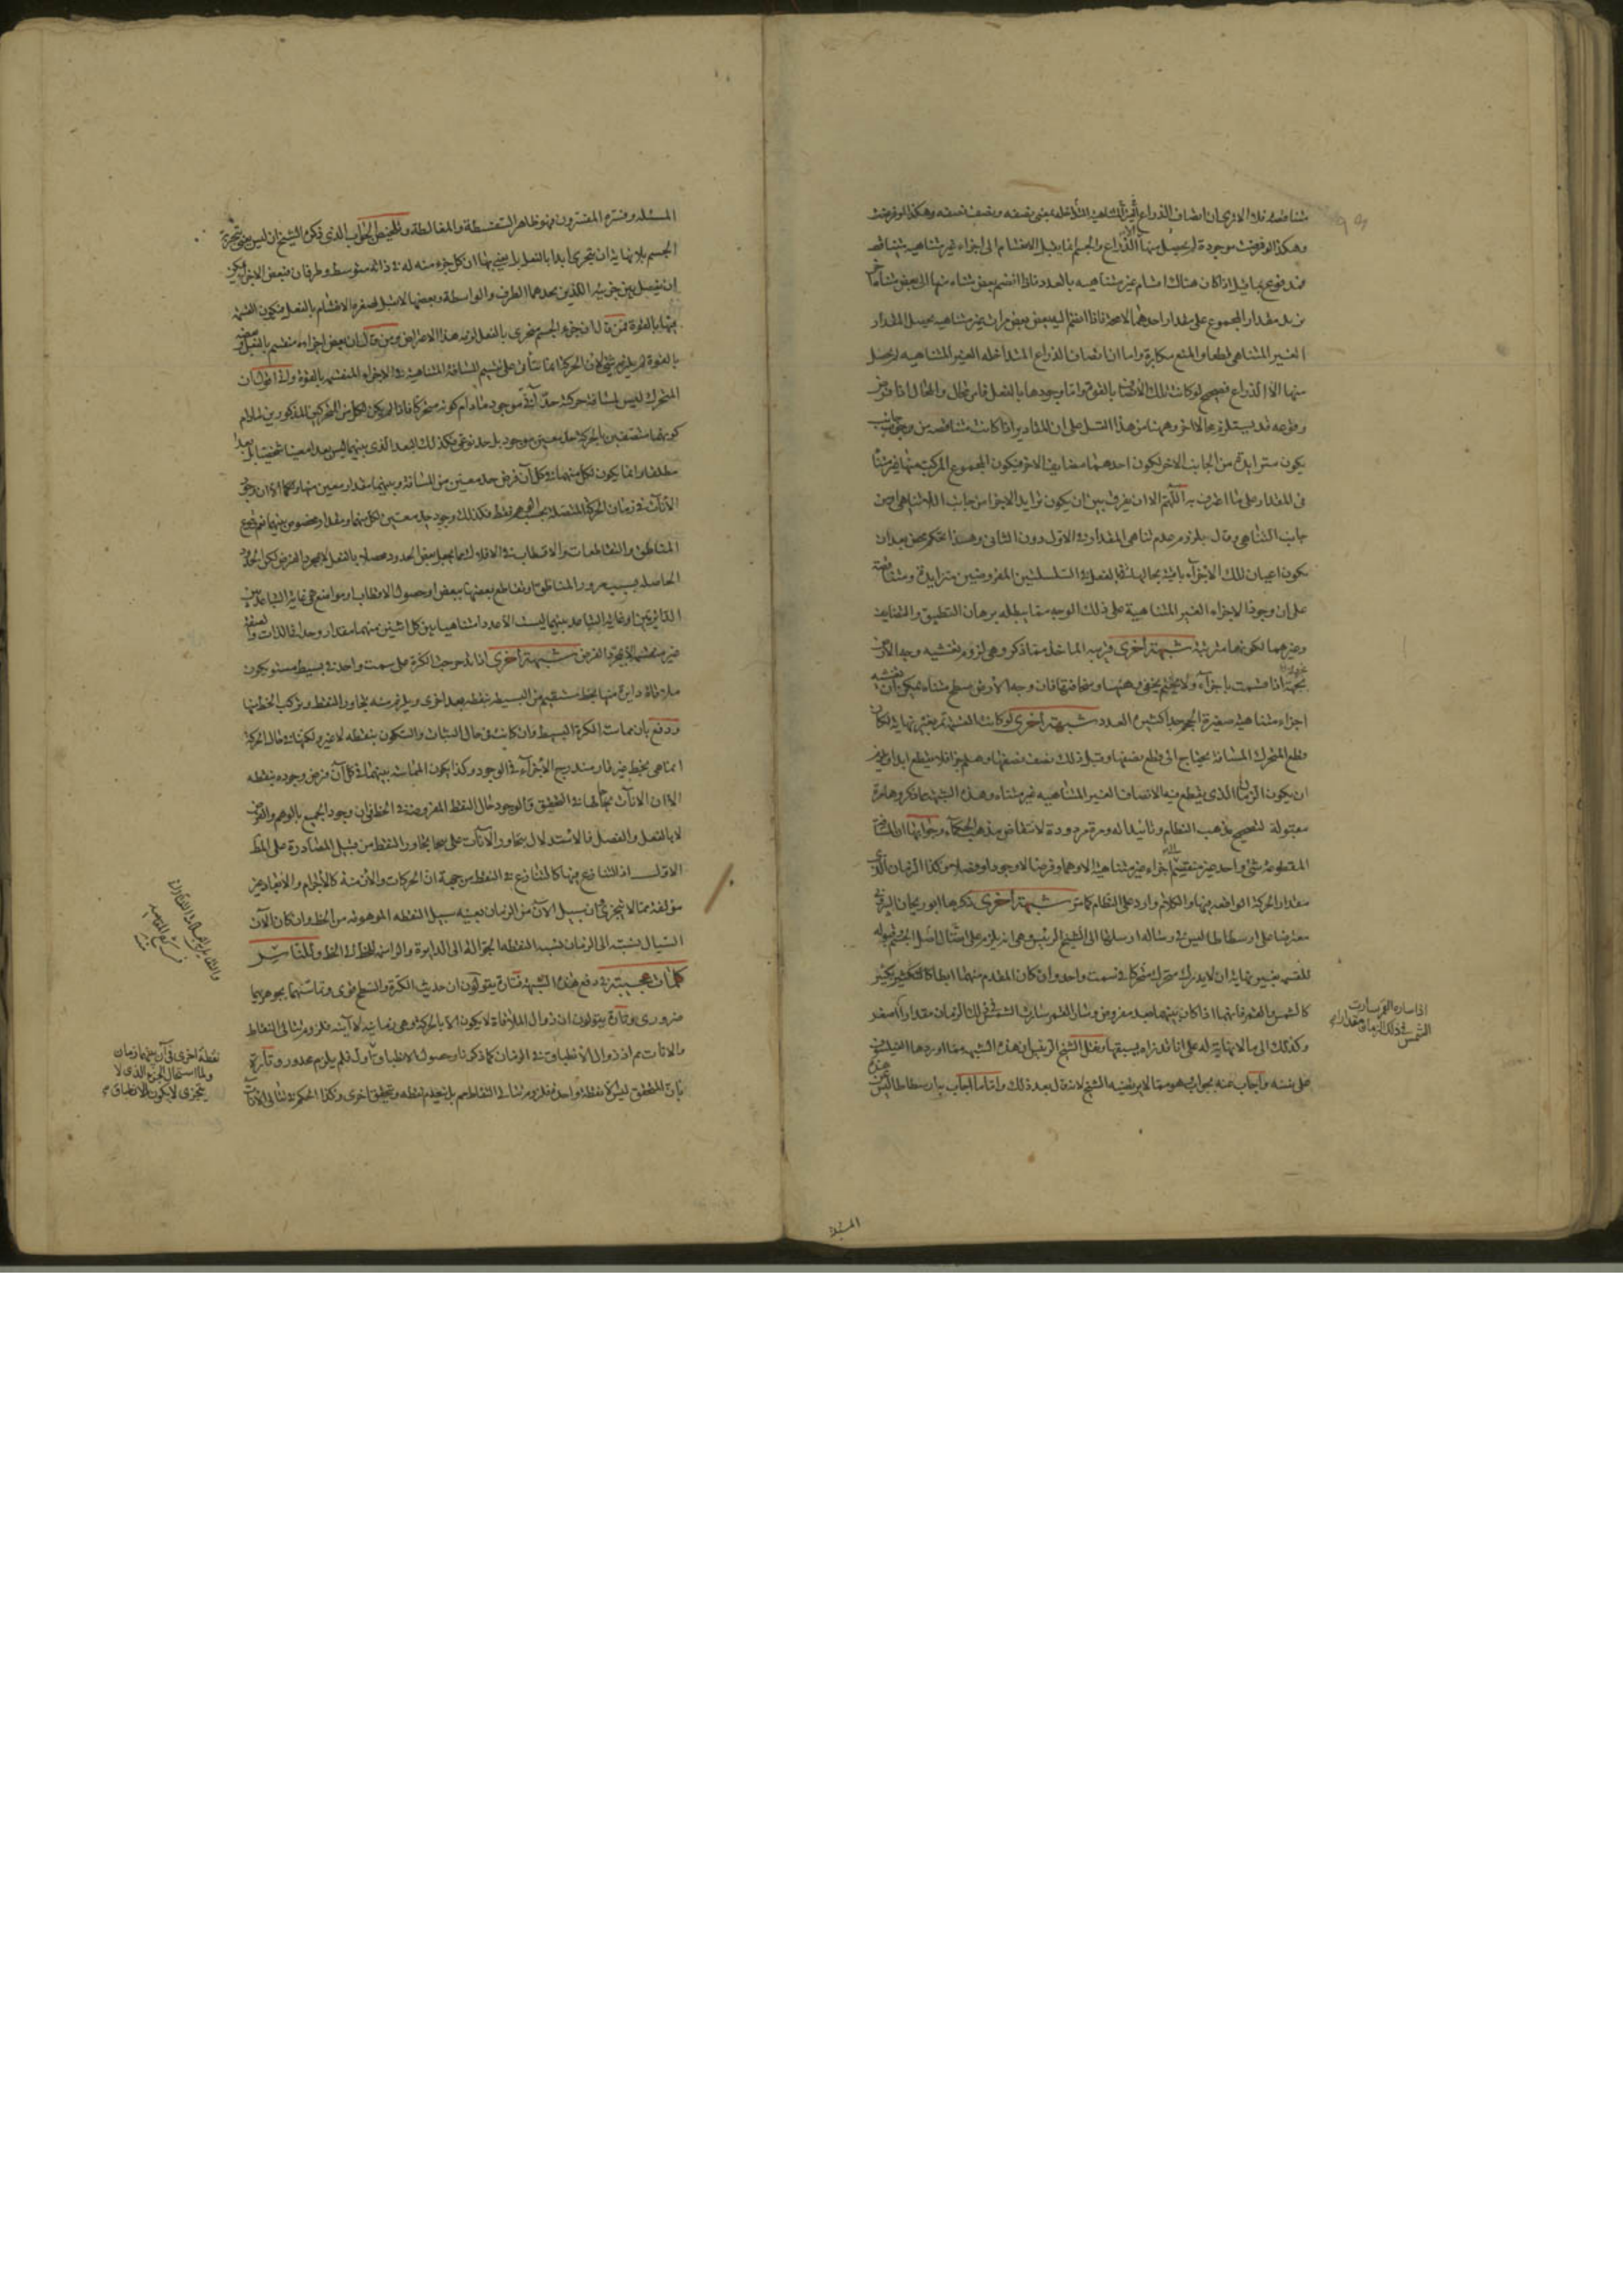 متناقصة فلا الا ترى ان انصاف الذراع الغير المتناهية المتداخلة بمعنى نصفه ونصف نصفه وهكذا لو فرضت
وهكذا لو فرضت موجودة لم يحصل منها الا الذراع والجسم انما يقبل الانقسام الى اجزاء غير متناهية متناقصة
فمدفوع بما قيل اذا كان هناك اقسام غير متناهية بالعدد فاذا انضم بعض متناه منها الى بعض متناه آخر
يزيد مقدار المجموع على مقدار احدهما لا محالة فاذا انضم اليه بعض بعض مرات غير متناهية يحصل المقدار
الغير المتناهي قطعا والمنع مكابرة واما ان انصاف الذراع المتداخلة الغير المتناهية لم يحصل
منها الا الذراع فصحيح لو كانت تلك الانصاف بالقوة واما وجودها بالفعل فامر محال والمحال اذا فرض
وقوعه قد يستلزم محالا آخر وههنا من هذا القبيل على ان المقادير اذا كانت متناقصة من وجه وجانب
يكون متزايدة من الجانب الاخر لكون احدهما مضايف الاخر فيكون المجموع المركب منها غير متناه
في المقدار على ما اعترف به اللهم الا ان يفرق بين ان يكون تزايد الاجزاء من جانب اللاتناهي او من
جانب التناهي وقال بلزوم عدم تناهي المقدار في الاول دون الثاني وهذا تحكم محض بعد ان
يكون اعيان تلك الاجزاء باقية بحالها بالفعل في السلسلتين المفروضتين متزايدة ومتناقصة
على ان وجود الاجزاء الغير المتناهية على ذلك الوجه مما يبطله برهان التطبيق والتضايف
وغيرهما لكونها مترتبة شبهة اخرى قريبة الماخذ مما ذكر وهي لزوم تغشية وجه الارض
بحبة اذا قسمت باجزاء ولا يخفى وهنها وسخافتها فان وجه الارض سطح متناه يمكن ان يغشيه
اجزاء متناهية صغيرة الحجم جدا كثيرة العدد شبهة اخرى لو كانت القسمة تمر بغير نهاية لكان
قطع المتحرك المسافة يحتاج الى قطع نصفها وقبل ذلك نصف نصفها وهلم جرا فلا يقطع ابدا ولزم
ان يكون الزمان الذي يقطع فيه الانصاف الغير المتناهية غير متناه وهذه الشبهة مما ذكروها مرة
مقبولة لتصحيح مذهب النظام وتاييدا له ومرة مردودة لانتقاض مذهب الحكماء وجوابها ان المسافة
المقطوعة شيء واحد غير منقسم الى اجزاء غير متناهية الا وهما وفرضا لا وجودا وفصلا وكذا الزمان الذي
مقدار الحركة الواقعة فيها والكلام وارد على النظام كما مر شبهة اخرى ذكرها ابو ريحان البيروني
معترضا على ارسطاطاليس في رسالة ارسلها الى الشيخ الرئيس وهي انه يلزم على اتصال الجسم وقبوله
للقسمة بغير نهاية ان لا يدرك متحرك متحركا في سمت واحد وان كان المقدم منهما ابطأ كالكثير بكثير
كالشمس والقمر فانهما اذا كان بينهما بعد مفروض وسار القمر سارت الشمس في ذلك الزمان مقدارا اصغر
وكذلك الى ما لا نهاية له على انا قد نراه يسبقها ونقل الشيخ الرئيس ان هذه الشبهة مما اوردها الفيلسوف
على نفسه واجاب عنه بجواب هو مما لا يرتضيه الشيخ لانه قال بعد ذلك واما ما اجاب به ارسطاطاليس عن هذه
اذا ساره القمر سارت
الشمس في ذلك الزمان مقدارا
المسئلة
المسئلة وفسره المفسرون فهو ظاهر السفسطة والمغالطة وتلخيص الجواب الذي ذكره الشيخ ان ليس معنى تجزية
الجسم بلا نهاية ان يتجزى ابدا بالفعل بل يعنى بها ان كل جزء منه له في ذاته متوسط وطرفان فبعض الاجزاء يمكن
ان يفصل بين جزئيه اللذين يحدهما الطرف والواسطة وبعضها لا يقبل لصغره الانقسام بالفعل فيكون القسمة
فيها بالقوة فمن قال ان جزء الجسم يتجزى بالفعل لزمه هذا الاعتراض ومن قال بان بعض اجزاءه منقسم بالفعل وبعضه
بالقوة لم يلزمه شيء لان الحركة انما تتأتى على تقسيم المسافة المتناهية في الاجزاء المنقسمة بالقوة واذ اقول ان
المتحرك ليس لمسافة حركته حد آني موجود ما دام كونه متحركا فاذا لم يكن لكل من المتحركين المذكورين ما دام
كونهما متصفين بالحركة حد معين موجود بل حد نوعي فكذلك البعد الذي بينهما ليس بعدا معينا شخصيا بل بعدا
مطلقا وانما يكون لكل منهما في كل آن فرض حد معين من المسافة وبينهما مقدار معين منها وكما ان وجود
الآنات في زمان الحركة المتصلة بحسب الوهم فقط فكذلك وجود حد معين لكل منهما ومقدار مخصوص بينهما
المناطق والتقاطعات والاقطاب في الافلاك مما يجعل بعض الحدود محصلة بالفعل لا بمجرد الفرض لكن الحدود
الحاصلة بسبب مرور المناطق او تقاطع بعضها ببعض او حصول الاقطاب او مواضع هي غاية التباعد بين
الدائرتين او غاية التباعد بينهما ليست الا عددا متناهيا بين كل اثنين منهما مقدار وحداني الذات والصفة
غير منقسم الا بمجرد الفرض شبهة اخرى اذا تدحرجت الكرة على سمت واحد في بسيط مستو يكون
ملاقاة دايرة منها بخط مستقيم من البسيط بنقطة بعد اخرى ويلزم منه تجاور النقط وتركب الخط منها
ودفع بان مماسة الكرة البسيط وان كانت في حال الثبات والسكون بنقطة لا غير ولكنها في حال الحركة
انما هي بخط غير قار متدرج الاجزاء في الوجود وكذا يكون المماسة بينهما في كل آن فرض وجوده بنقطة
الا ان الآنات حالها في التحقق والوجود حال النقط المفروضة في الخط في ان وجود الجميع بالوهم والفرض
لا بالفعل والفصل فالاستدلال بتجاور الآنات على صحة تجاور النقط من قبيل المصادرة على المط
الاول اذ التنازع فيها كالتنازع في النقط من جهة ان الحركات والازمنة كالاجرام والابعاد غير
مؤلفة مما لا يتجزى فان سبيل الآن من الزمان بعينه سبيل النقطة الموهومة من الخط وان كان الآن
السيال نسبته الى الزمان نسبة النقطة الجوالة الى الدايرة والراسمة للخط الى الخط وللناس
كلمات عجيبة في دفع هذه الشبهة فتارة يقولون ان حديث الكرة والسطح قوي وتماسهما بجوهريهما
ضروري وتارة يقولون ان زوال الملاقاة لا يكون الا بالحركة وهي زمانية لا آنية فلزوم تتالي النقاط
والآنات مم اذ زوال الانطباق في الزمان كما ذكرنا وحصول الانطباق فلم يلزم محذور وتارة
بان المتحقق ليس الا نقطة واحدة فلزوم تتالي النقاط مم بل ينعدم نقطة ويتحقق اخرى وكذا الحكم في تتالي الآنات
نقطة اخرى في آن بينهما زمان
ولما استحال الجزء الذي لا
يتجزى لا يكون الانطباق